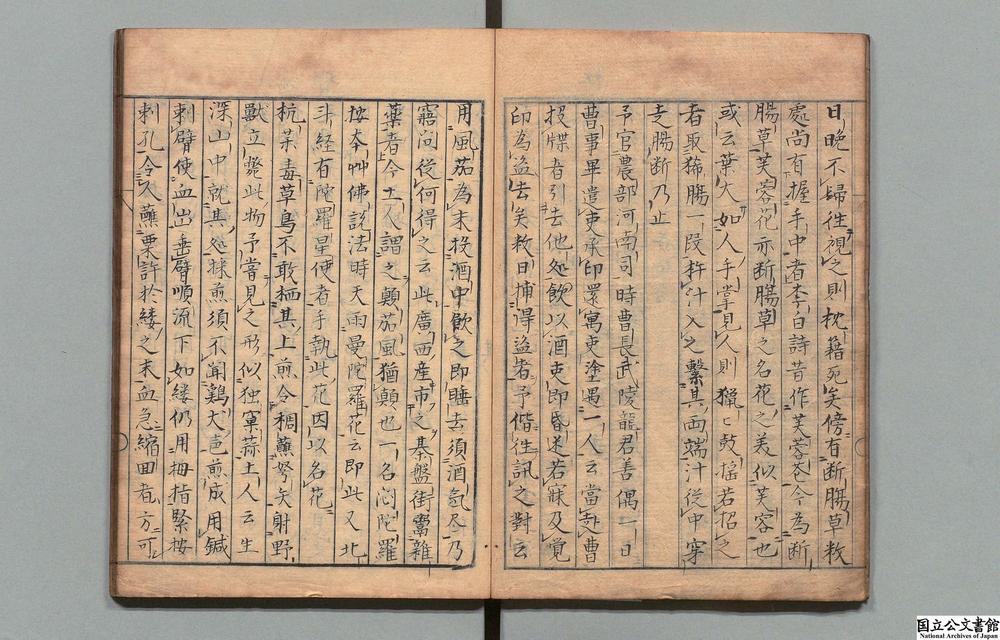 日晩不歸徃視之則枕籍死矣傍有断腸草数
處尚有握手中者李白詩昔作芙蓉花今為断
腸草芙蓉花亦断腸草之名花之美似芙容也
或云葉大如人手掌見人則獵〻鼓揺若招之
者取豨腸一段杵汁入之繫其両端汁従中穿
走腸断乃止
予官農部河南司時曹長武陵龍君善偶一日
曹事畢遣吏承印還寓吏塗遇一人云當赴曹
投牒者引去他処飲以酒吏即昏迷若寐及覚
印為盗去矣数日捕得盗者予偕徃訊之對云
用風茄為末投酒中飲之即睡去須酒氣尽乃
寤问従何得之云此廣西産市之棊盤街鬻雜
藥者今土人謂之顛茄風猶顛也一名闷陀羅
按本艸佛説法時天雨曼陀羅花云即此又北
斗経有陀羅星使者手執此花因以名花
杭茱毒草鳥不敢栖其上煎令稠蘸弩矢射野
獣立斃此物予嘗見之形似独窠蒜土人云生
深山中就其処採煎須不闻鷄犬㐌煎成用鍼
刺臂使血出垂臂順流下如缕仍用拇指緊按
刺孔令人蘸栗許於縷之末血急縮回者方可
国立公文書館
National Archives of Japan